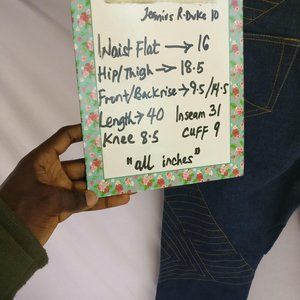 Jennies R.Duke 10
Waist Flat → 16
Hip/Thigh → 18.5
Front/Backrise → 9.5/14.5
Length → 40 Inseam 31
Knee 8.5 CUFF 9
"all inches"